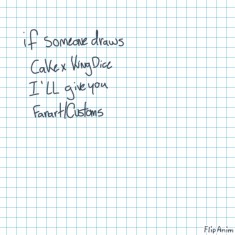 if Someone draws
Cake x King Dice
I'LL give you
Fanart/Customs
FlipAnim